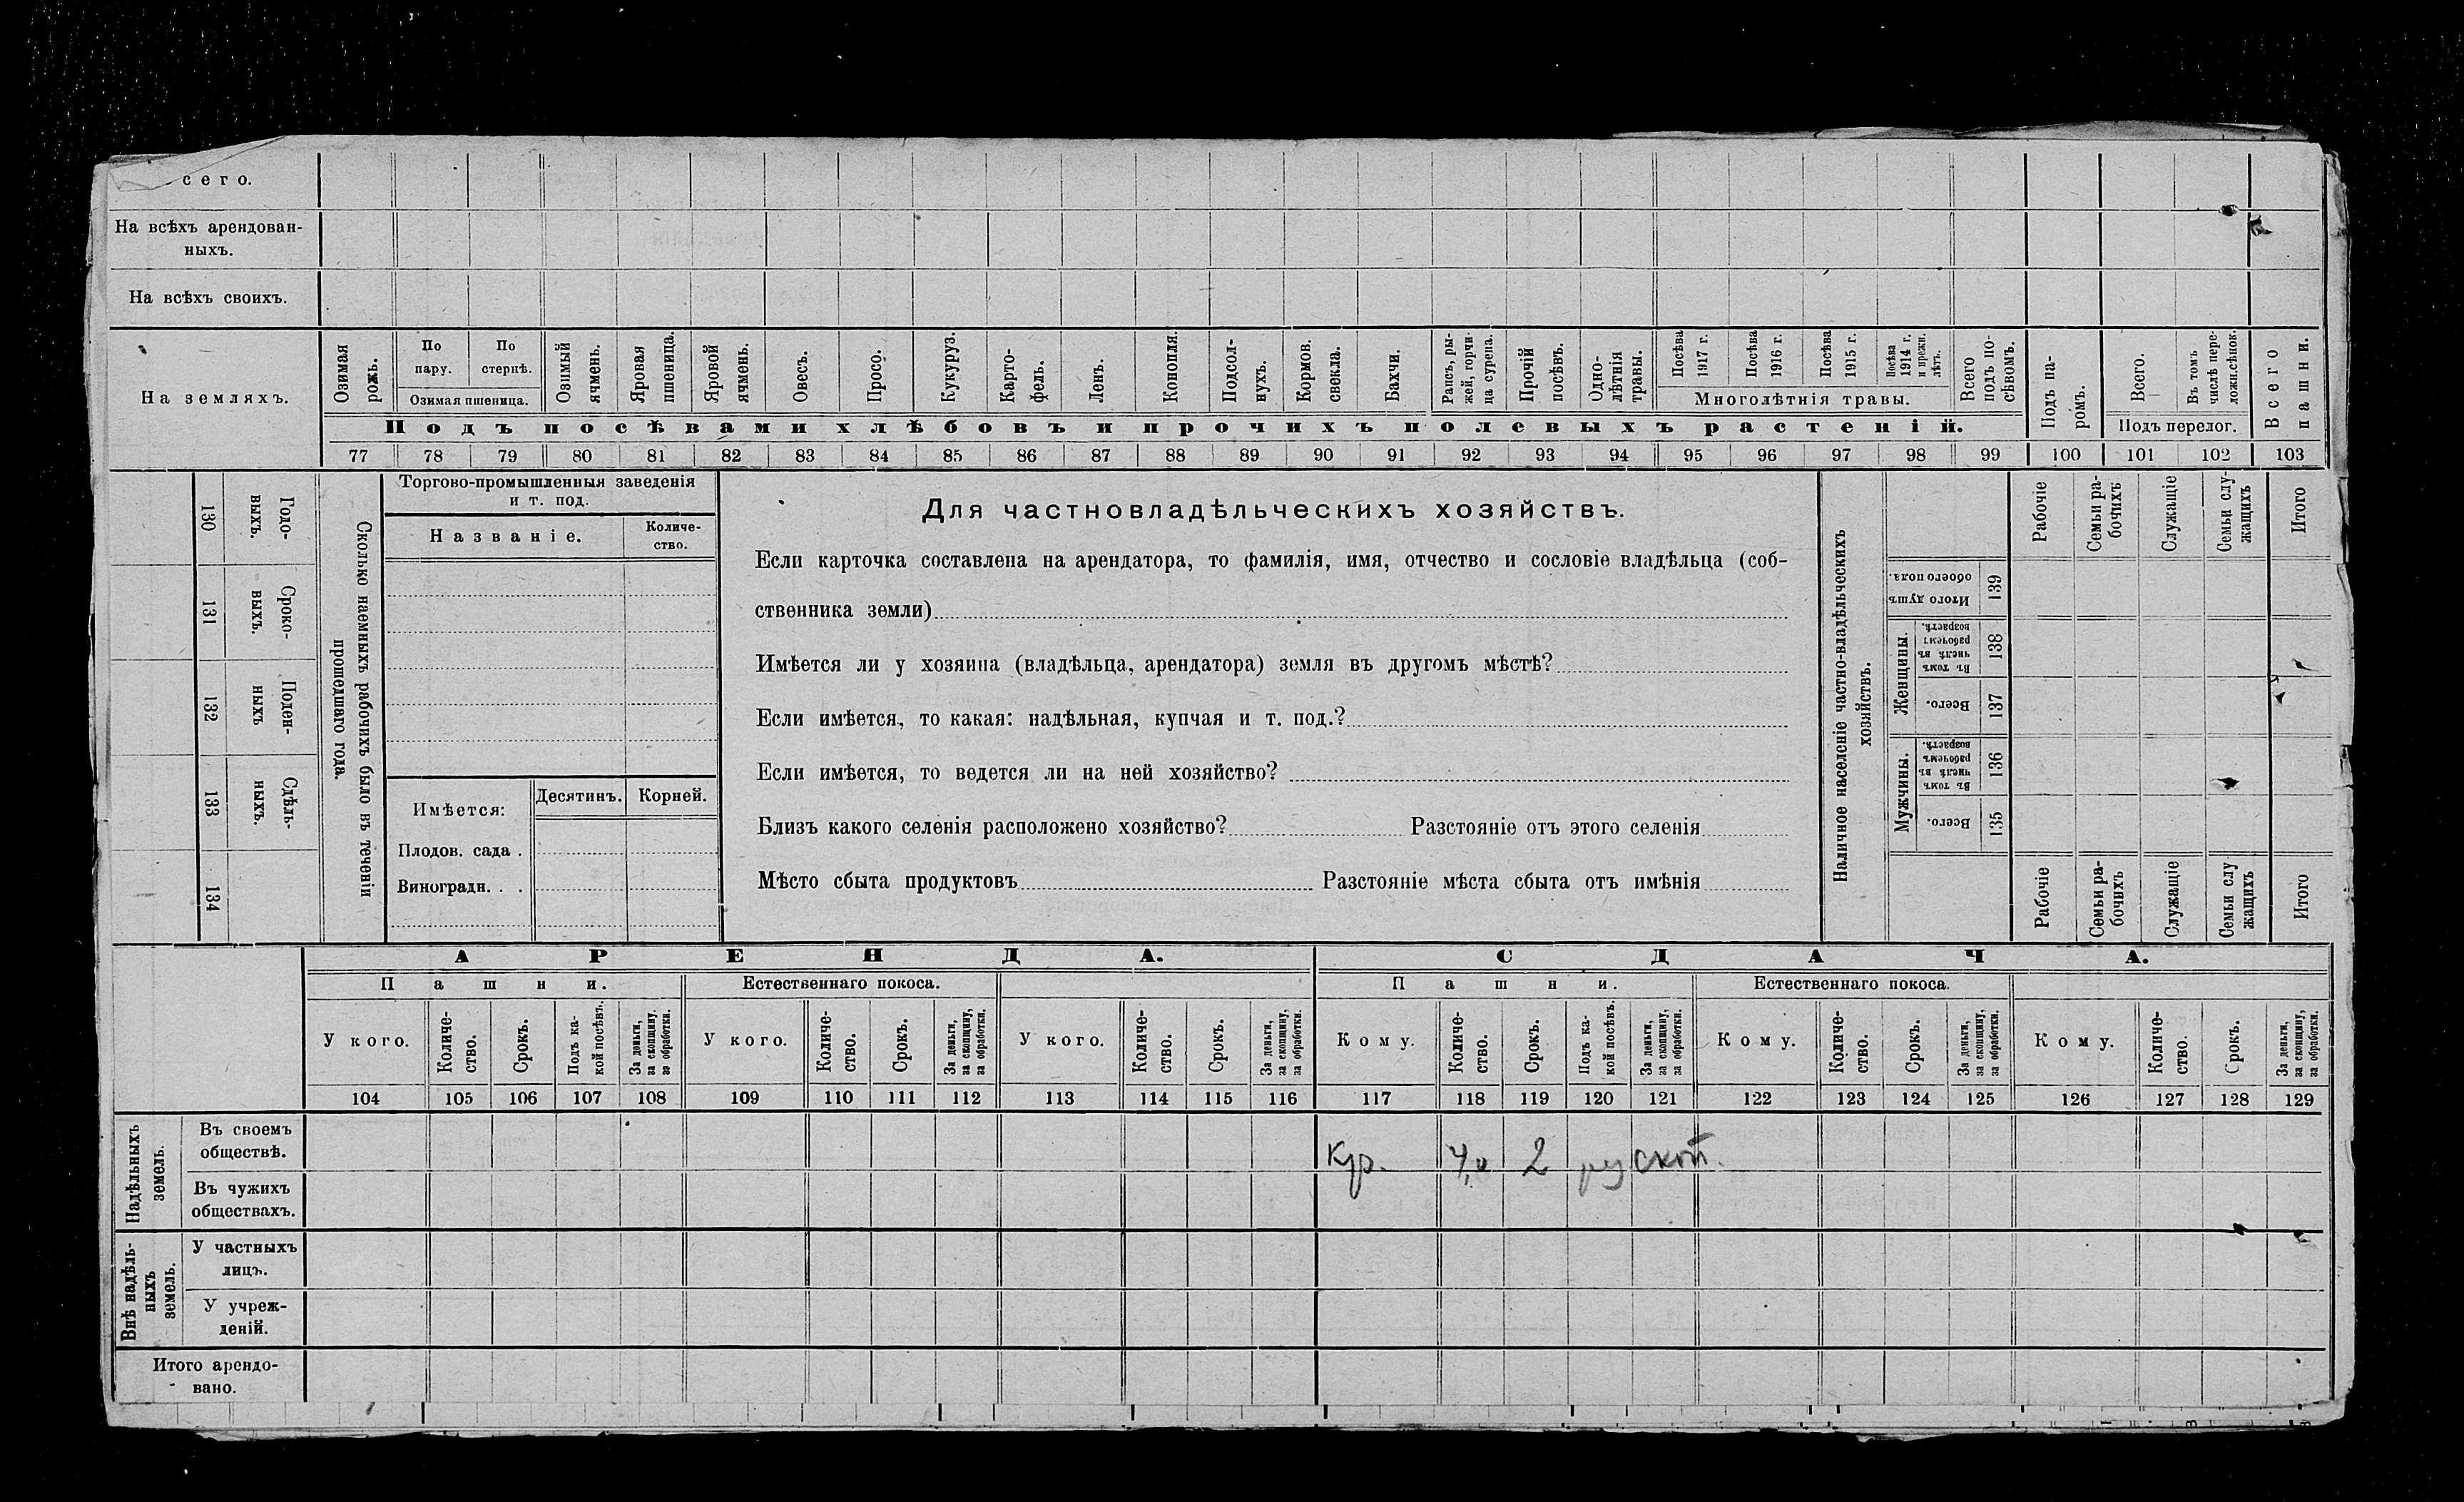 сего.
На всѣхъ арендован-
ныхъ.
На всѣхъ своихъ.
На земляхъ.
Озимая рожь.
По пару.
По стернѣ.
Озимая пшеница.
Озимый ячмень.
Яровая пшеница.
Яровой ячмень.
Овесъ.
Просо.
Кукуруз.
Карто-
фель.
Ленъ.
Конопля.
Подсол-
нухъ.
Кормов. свекла.
Бахчи.
Рапсъ, ры-
жей, горчи-
ца сурепа.
Прочій посѣвъ.
Одно-
лѣтнія травы.
Посѣва 1917 г.
Посѣва 1916 г.
Посѣва 1915 г.
Посѣва 1914 г. и прежн. лѣтъ.
Многолѣтнія травы.
Всего подъ по-
сѣвомъ.
Подъ па-
ромъ.
Всего.
Въ томъ числѣ пере-
ложн.сѣнок.
Подъ перелог.
Всего пашни.
Подъ посѣвами хлѣбовъ и прочихъ полевыхъ растеній.
77 78 79 80 81 82 83 84 85 86 87 88 89 90 91 92 93 94 95 96 97 98 99 100 101 102 103
130 Годо-
выхъ.
131 Сроко-
выхъ.
132 Поден-
ныхъ
133 Сдѣль-
ныхъ.
134
Сколько наемныхъ рабочихъ было въ теченіи
прошедшаго года.
Торгово-промышленныя заведенія
и т. под.
Названіе.
Количе-
ство.
Имѣется:
Десятинъ. Корней.
Плодов. сада .
Виноградн. . .
Для частновладѣльческихъ хозяйствъ.
Если карточка составлена на арендатора, то фамилія, имя, отчество и сословіе владѣльца (соб-
ственника земли)
Имѣется ли у хозяина (владѣльца, арендатора) земля въ другомъ мѣстѣ?
Если имѣется, то какая: надѣльная, купчая и т. под.?
Если имѣется, то ведется ли на ней хозяйство?
Близъ какого селенія расположено хозяйство? Разстояніе отъ этого селенія
Мѣсто сбыта продуктовъ Разстояніе мѣста сбыта отъ имѣнія
Наличное населеніе частно-владѣльческихъ
хозяйствъ.
Рабочіе
Семьи ра-
бочихъ
Служащіе
Семьи слу-
жащихъ
Итого
Итого душъ обоего пола. 139
Женщины.
Въ томъ числѣ въ рабочемъ возрастѣ. 138
Всего. 137
Мужчины.
Въ томъ числѣ въ рабочемъ возрастѣ. 136
Всего. 135
Рабочіе
Семьи ра-
бочихъ
Служащіе
Семьи слу
жащихъ
Итого
АРЕНДА.
СДАЧА.
Пашни.
Естественнаго покоса.
Пашни.
Естественнаго покоса.
У кого.
Количе-
ство.
Срокъ.
Подъ ка-
кой посѣвъ.
За деньги, за скопщину, за обработки.
У кого.
Количе-
ство.
Срокъ.
За деньги, за скопщину, за обработки.
У кого.
Количе-
ство.
Срокъ.
За деньги, за скопщину, за обработки.
Кому.
Количе-
ство.
Срокъ.
Подъ ка-
кой посѣвъ.
За деньги, за скопщину, за обработки.
Кому.
Количе-
ство.
Срокъ.
За деньги, за скопщину, за обработки.
Кому.
Количе-
ство.
Срокъ.
За деньги, за скопщину, за обработки.
104 105 106 107 108 109 110 111 112 113 114 115 116 117 118 119 120 121 122 123 124 125 126 127 128 129
Надѣльныхъ земель.
Въ своемъ
обществѣ.
Кр. 2
Въ чужихъ
обществахъ.
Внѣ надѣль-
ныхъ
земель.
У частныхъ
лицъ.
У учреж-
деній.
Итого арендо-
вано.